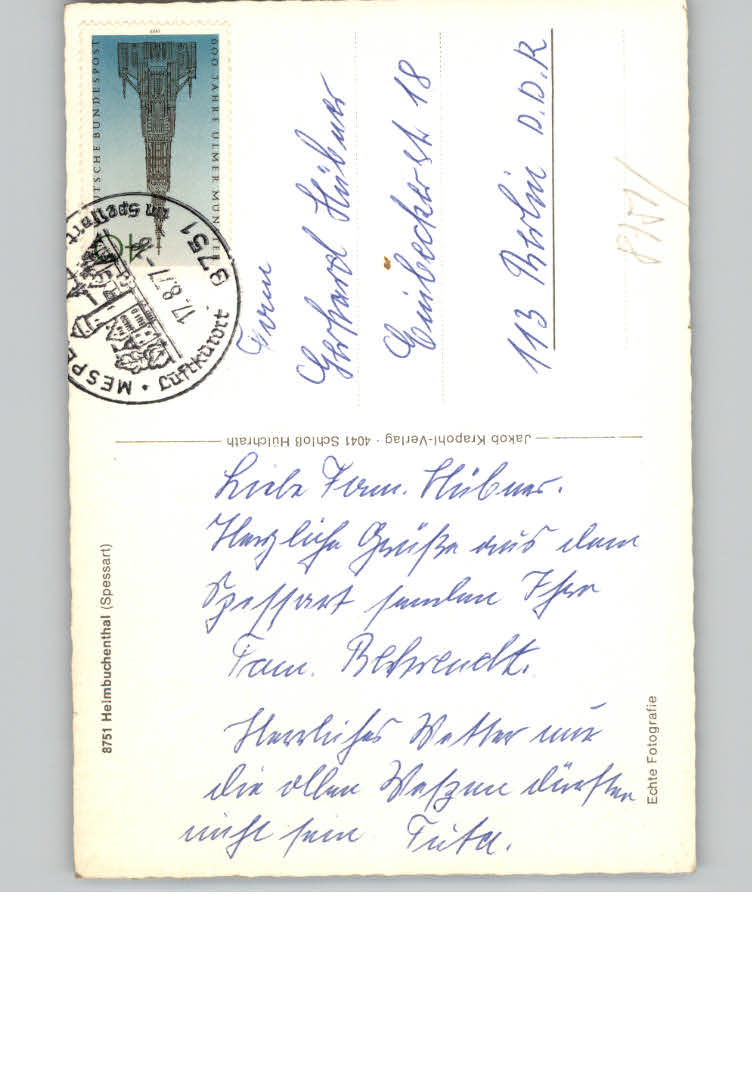 600 JAHRE ULMER MÜNSTER
DEUTSCHE BUNDESPOST
40
MESPE
Luftkurort
im Spessart
8751
17.8.77
Fam.
Gerhard Hübner
Einbecker st 18
113 Berlin D.D.R
8751
Jakob Krapohl-Verlag · 4041 Schloß Hülchrath
Liebe Fam. Hübner.
Herzliche Grüße aus dem
Spessart senden Ihre
Fam. Behrendt.
Herrliches Wetter nur
die ollen Wespen dürften
nicht sein
8751 Heimbuchenthal (Spessart)
Echte Fotografie